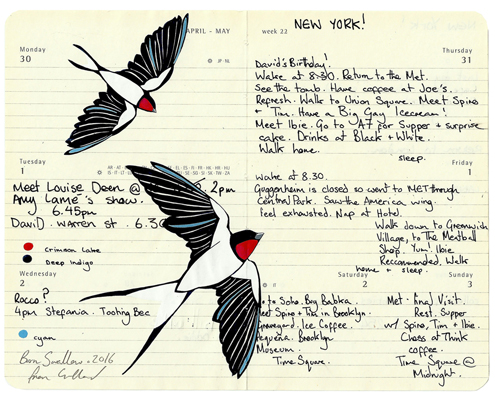 NEW YORK!
APRIL - MAY
week 22
Monday
30
Meet Louise Deen @ 2pm
Any Lame's show.
6.45pm
David. Warren st. 6.30
Tuesday
1
crimson Lake
Deep Indigo
Wednesday
2
Rocco?
4pm Stefania. Tooting Bec
cyan
Barn Swallow. 2016
Thursday
31
David's Birthday!
Wake at 8.30. Return to the Met.
See the tomb. Have coffee at Joe's.
Refresh. Walk to Union Square. Meet Spiro
+ Tim. Have a Big Gay Icecream!
Meet Ibie. Go to A7 for Supper + surprise
cake. Drinks at Black + White.
Walk home.
sleep.
Friday
1
Wake at 8.30.
Guggenheim is closed so went to MET through
Central Park. Saw the America wing.
Feel exhausted. Nap at Hotel.
Walk down to Greenwich
Village, to The Meatball
Shop. Yum! Ibie
Reccommended. Walk
home + sleep.
Saturday
2
to Soho. Big Babka.
Meet Spiro + Tim in Brooklyn.
Graveyard. Ice Coffee.
Brooklyn
Museum.
Time Square.
Sunday
3
Met. final Visit.
Rest. Supper
w/ Spiro, Tim + Ibie.
Chess at Think
coffee.
Time Square @
Midnight.